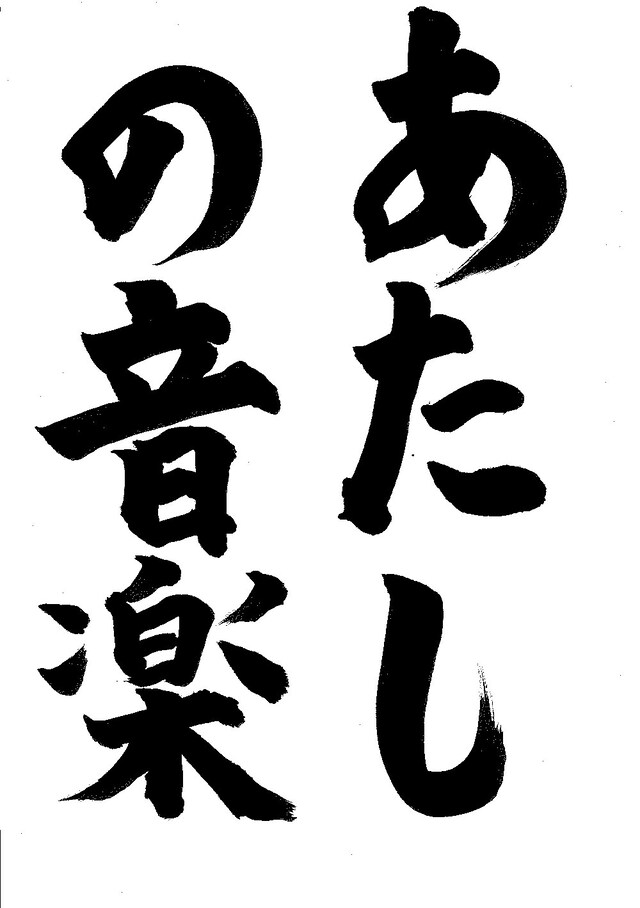 あたし
の音楽